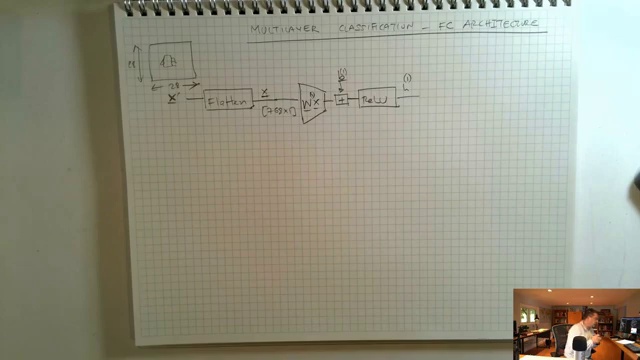 MULTILAYER CLASSIFICATION - FC ARCHITECTURE
28
x'
Flatten
x
W(1) x
+
ReLU
(1)